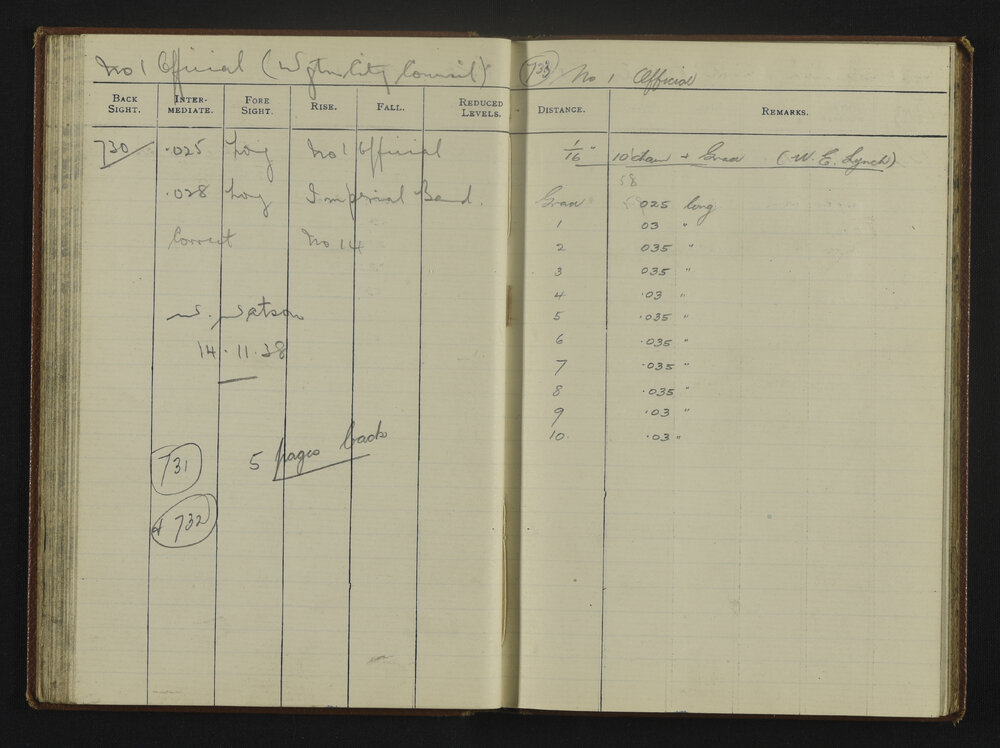 No 1 Official (Wgtn City Council)
BACK SIGHT. INTER-MEDIATE. FORE SIGHT. RISE. FALL. REDUCED LEVELS.
730 .025 long No 1 Official
.028 long Imperial Band.
Correct No 14
W. Watson
14.11.38
5 pages back
731
+ 732
733 No 1 Official
DISTANCE. REMARKS.
1/16" 10 chain + Grad (W. E. Lynch)
58
Grad 025 long
1 03 "
2 035 "
3 035 "
4 .03 "
5 .035 "
6 .035 "
7 .035 "
8 .035 "
9 .03 "
10. .03 "